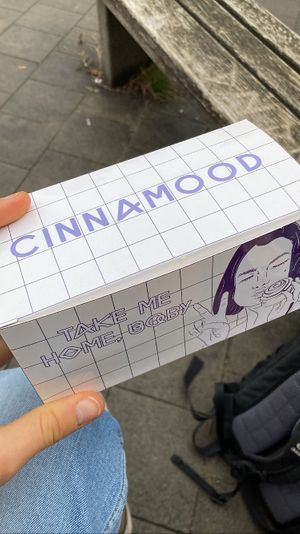 CINNAMOOD
TAKE ME
HOME, BABY